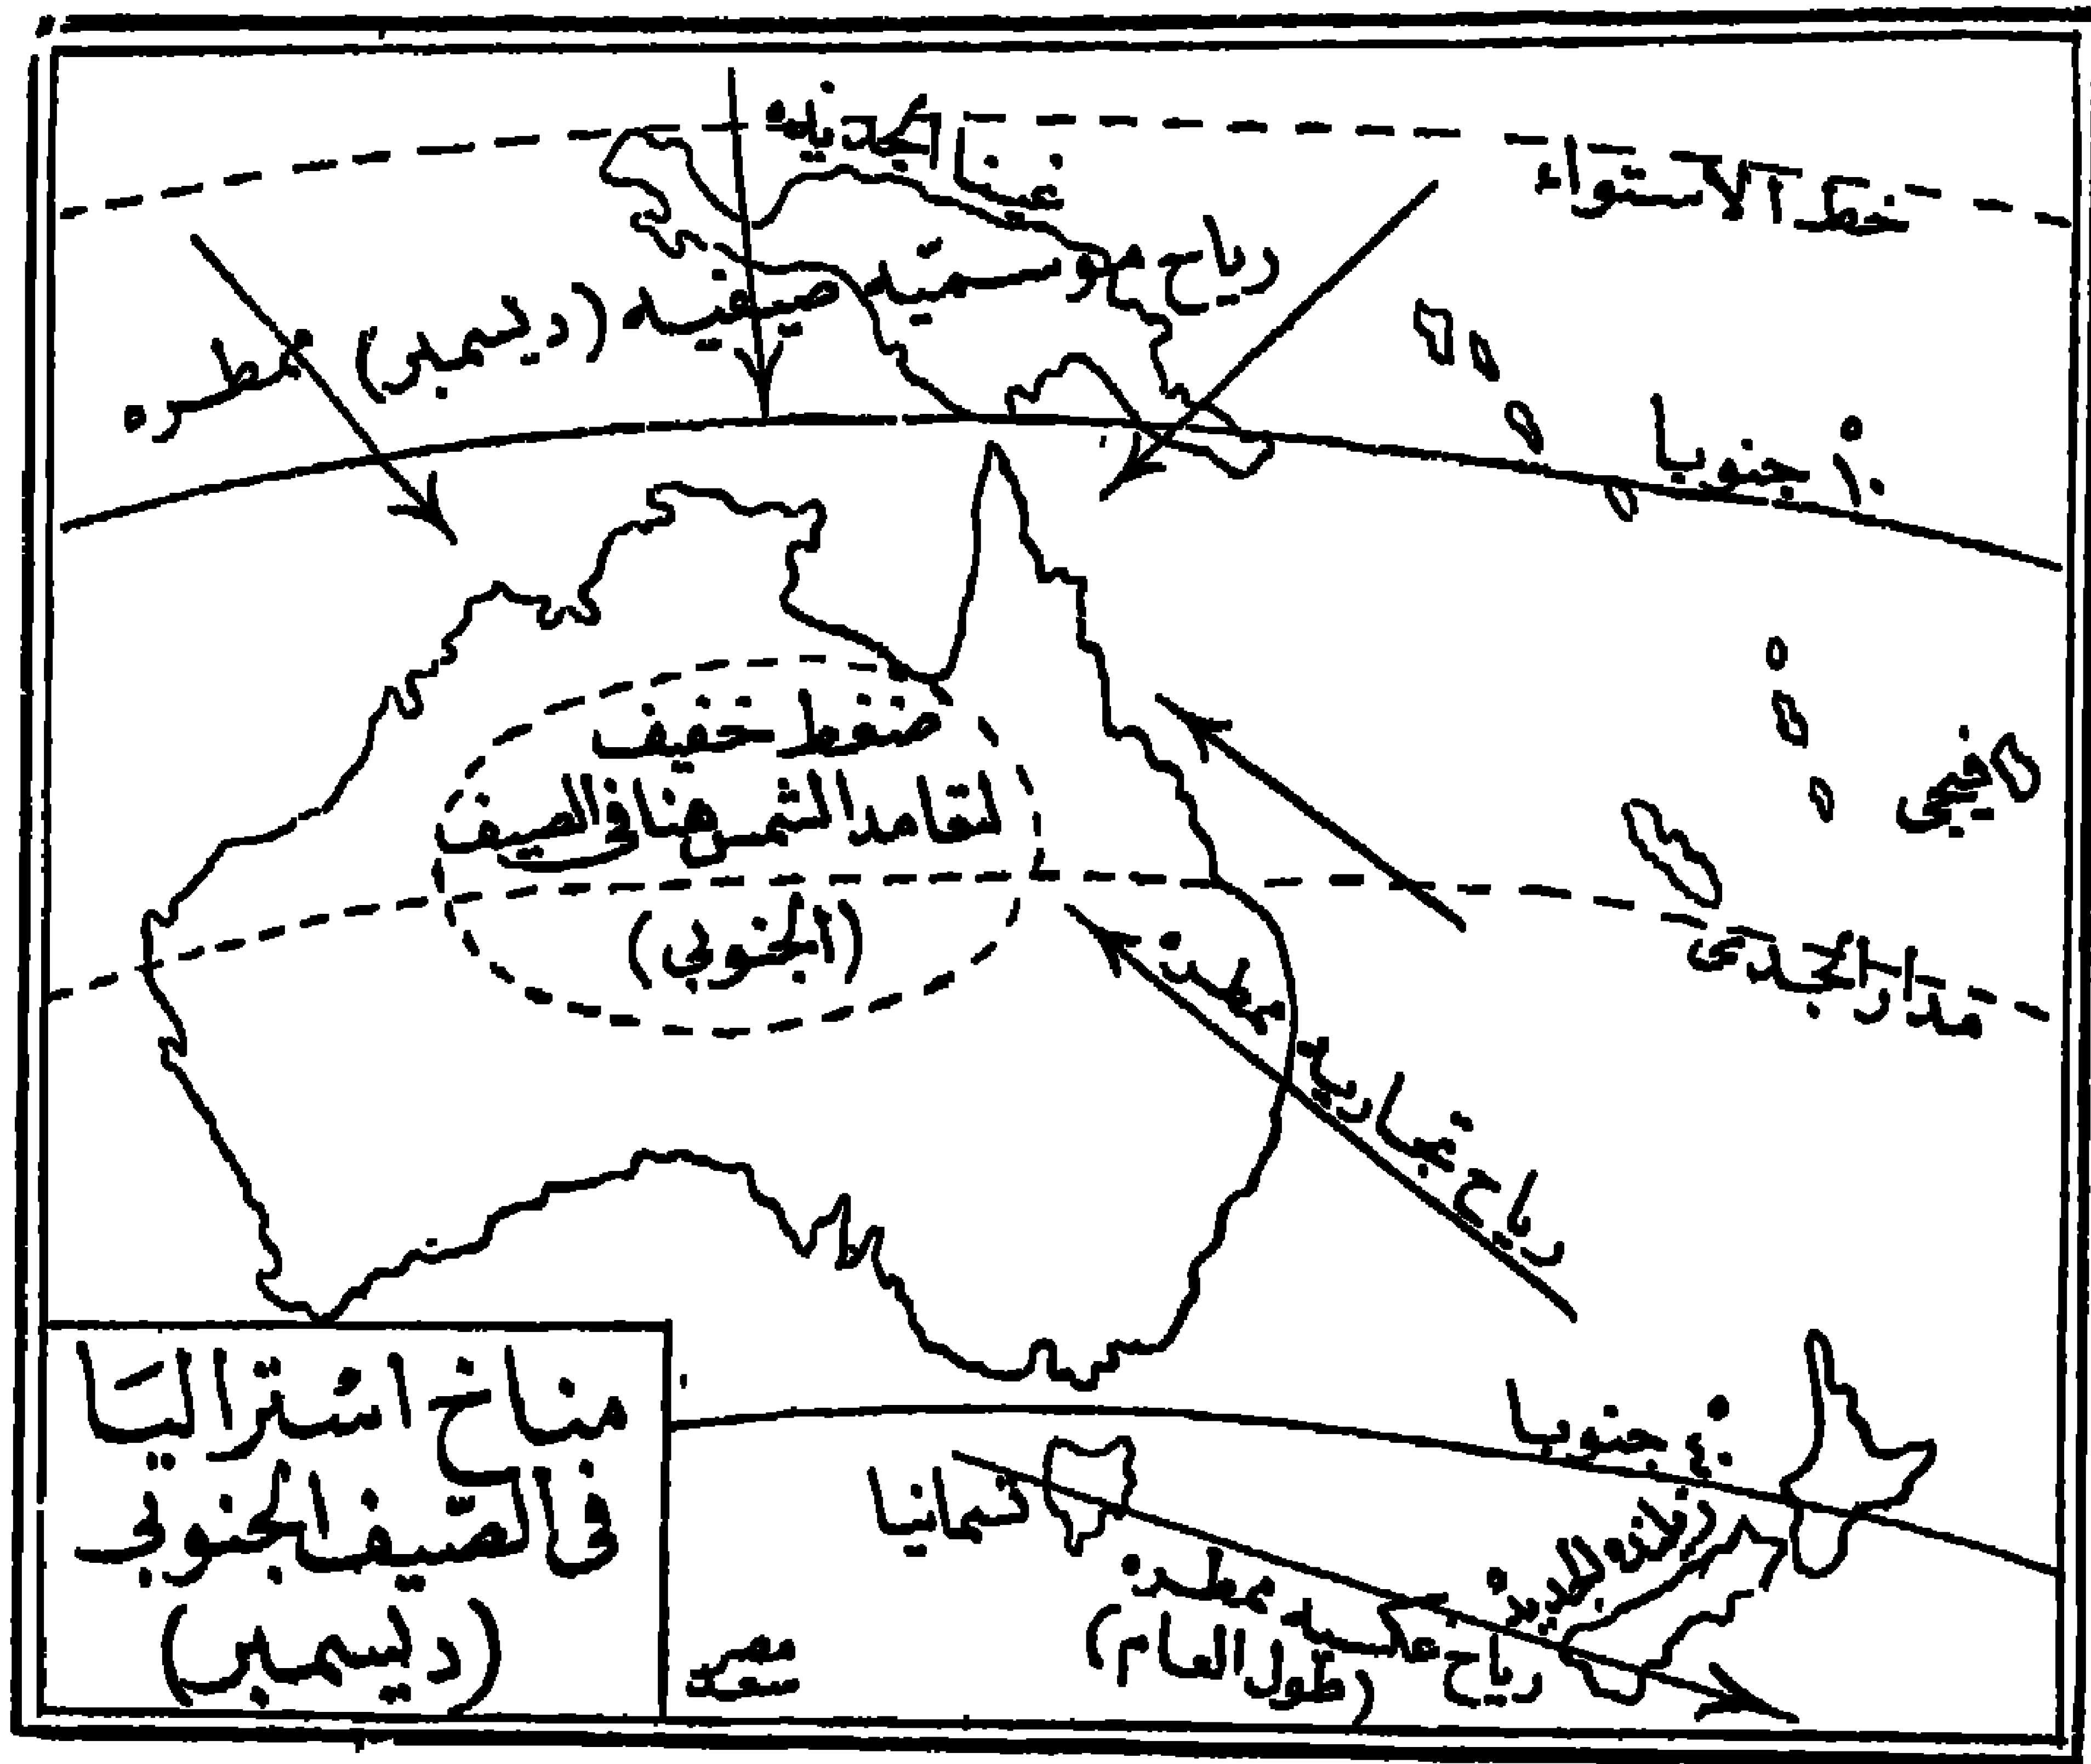 خط الاستواء
غنا الجديده
رياح موسميّه صيفيه (ديسمبر) ممطره
١٠° جنوبا
ضغط خفيف
لتعامد الشمس هنا فى الصيف
(الجنوبى)
فيجى
مدار الجدى
رياح تجاريه ممطره
٤٠° جنوبا
زيلنده الجديده
تسمانيا
رياح عكسيه ممطره
(طول العام)
مناخ استراليا
فى الصّيف الجنوبى
(ديسمبر)
سعد